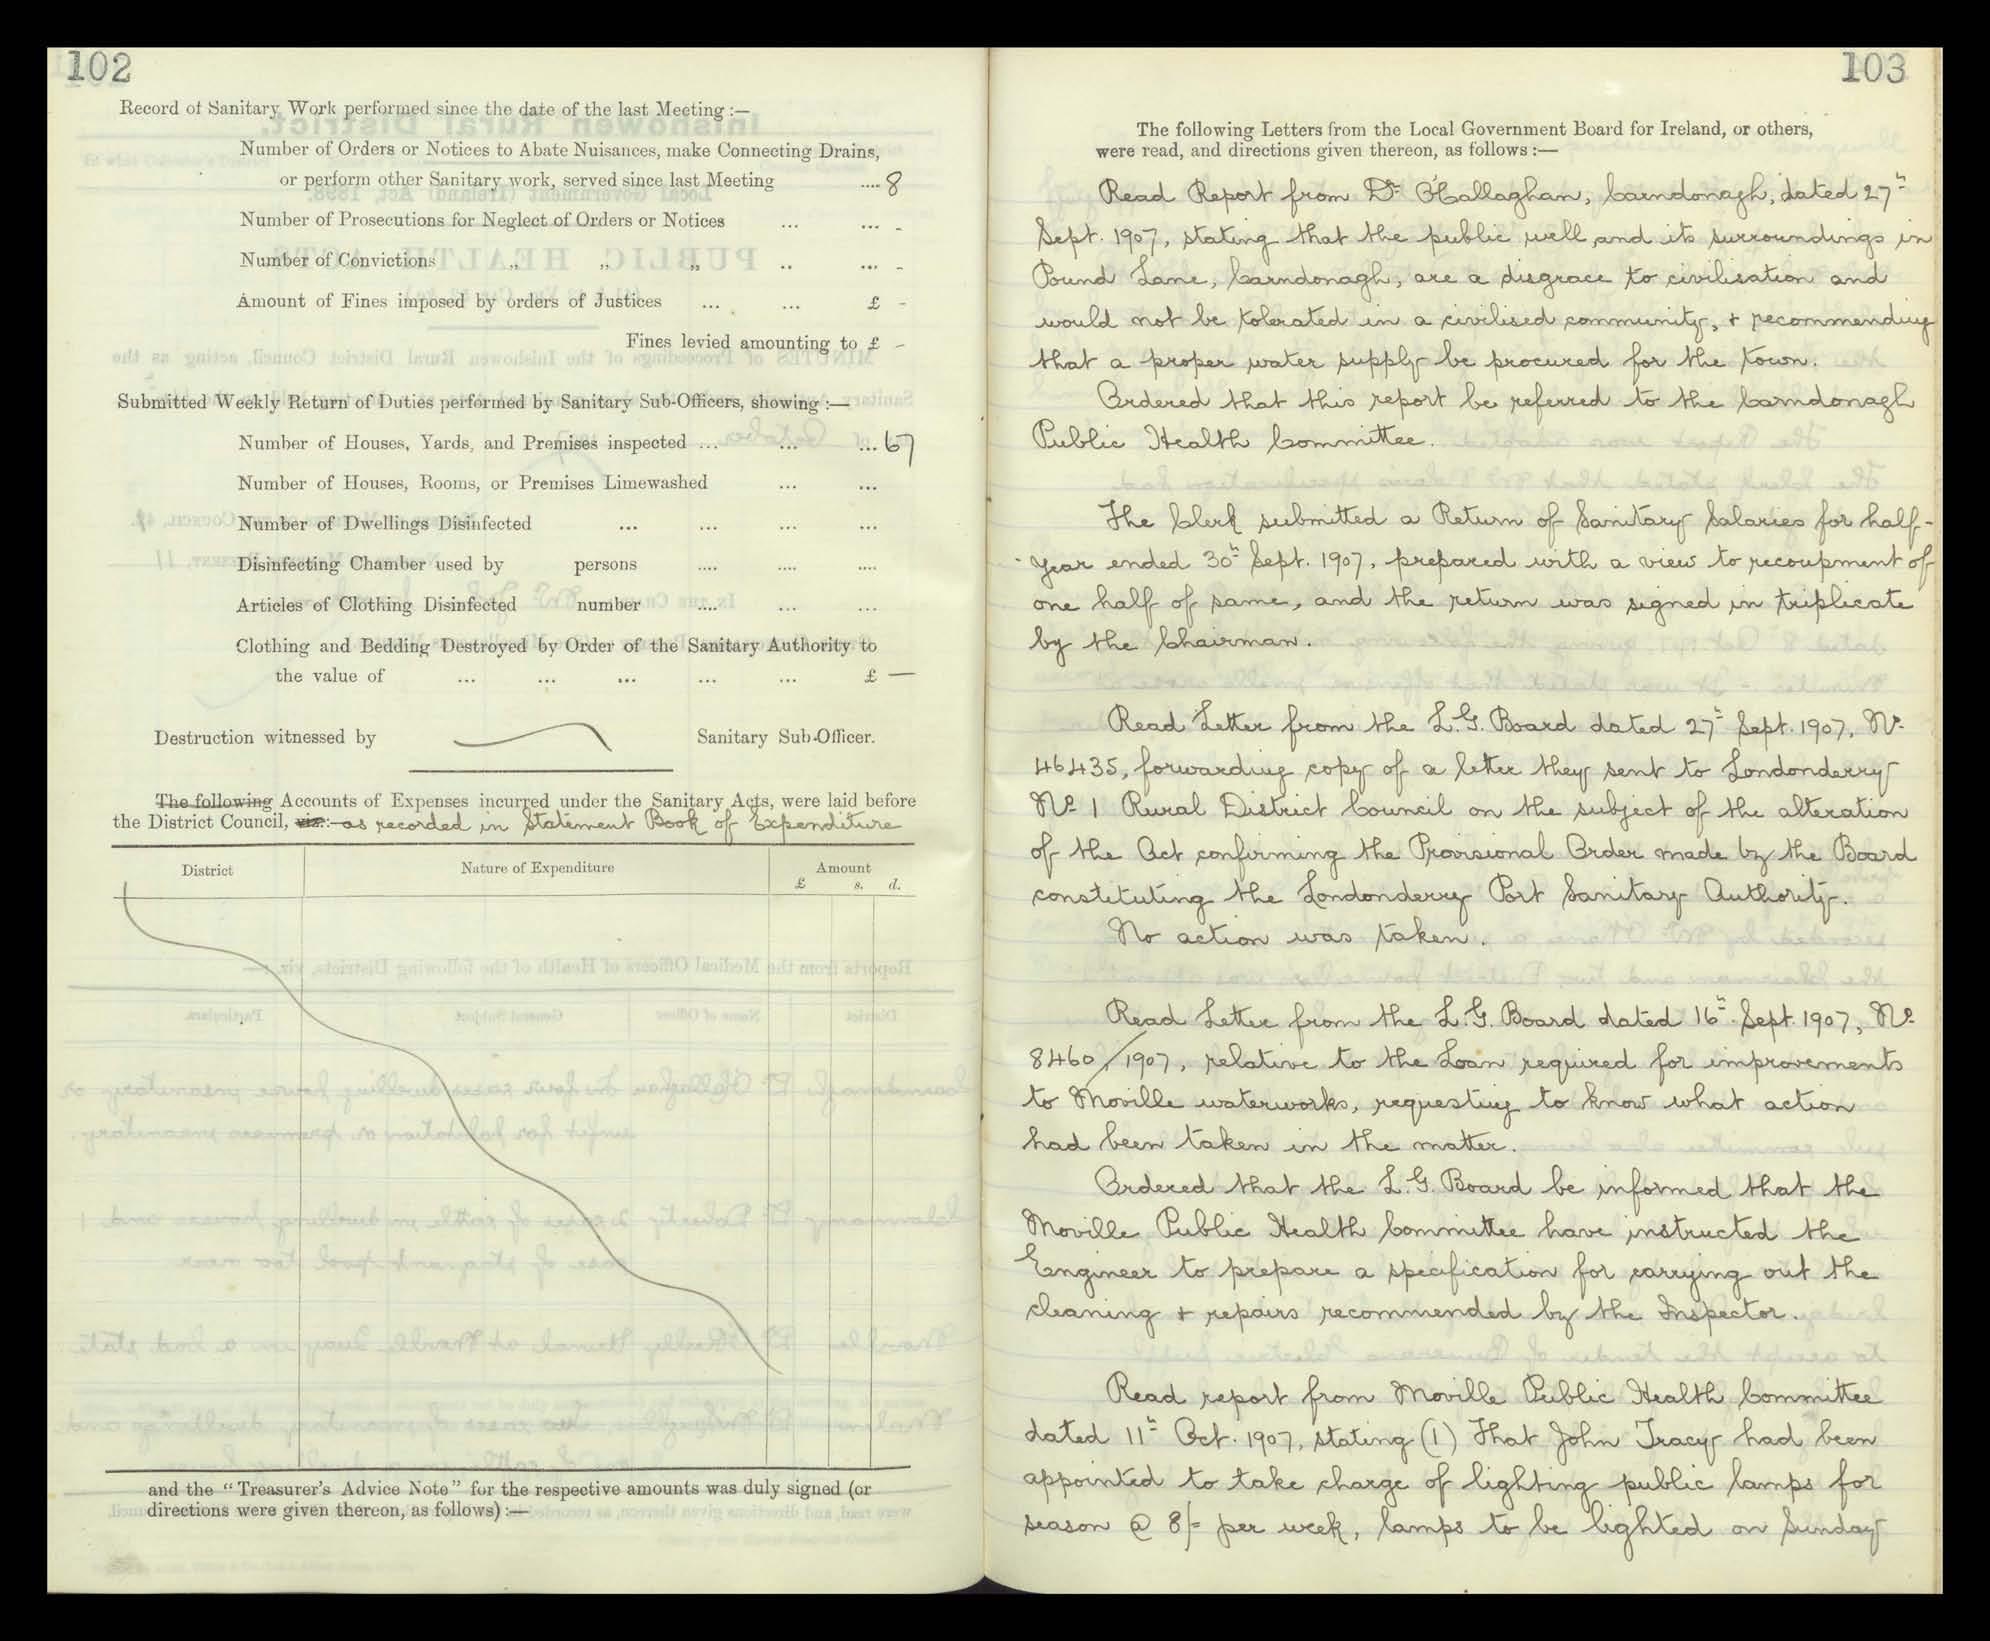 102
Record of Sanitary Work performed since the date of the last Meeting :—
Number of Orders or Notices to Abate Nuisances, make Connecting Drains,
or perform other Sanitary work, served since last Meeting .... 8
Number of Prosecutions for Neglect of Orders or Notices ... ... -
Number of Convictions „ „ „ .. ... -
Amount of Fines imposed by orders of Justices ... ... £ -
Fines levied amounting to £ -
Submitted Weekly Return of Duties performed by Sanitary Sub-Officers, showing :—
Number of Houses, Yards, and Premises inspected ... ... ... 67
Number of Houses, Rooms, or Premises Limewashed ... ...
Number of Dwellings Disinfected ... ... ... ...
Disinfecting Chamber used by persons .... .... ....
Articles of Clothing Disinfected number .... ... ...
Clothing and Bedding Destroyed by Order of the Sanitary Authority to
the value of ... ... ... ... ... £ —
Destruction witnessed by Sanitary Sub-Officer.
The following Accounts of Expenses incurred under the Sanitary Acts, were laid before
the District Council, viz.:— as recorded in Statement Book of Expenditure
District Nature of Expenditure Amount
£ s. d.
and the "Treasurer's Advice Note" for the respective amounts was duly signed (or
directions were given thereon, as follows) :—
103
The following Letters from the Local Government Board for Ireland, or others,
were read, and directions given thereon, as follows :—
Read Report from Dr. O'Callaghan, Carndonagh, dated 27th
Sept. 1907, stating that the public well and its surroundings in
Pound Lane, Carndonagh, are a disgrace to civilisation and
would not be tolerated in a civilised community, + recommending
that a proper water supply be procured for the town.
Ordered that this report be referred to the Carndonagh
Public Health Committee.
The Clerk submitted a Return of Sanitary Salaries for half-
year ended 30th Sept. 1907, prepared with a view to recoupment of
one half of same, and the return was signed in triplicate
by the Chairman.
Read Letter from the L.G. Board dated 27th Sept. 1907, No.
46435, forwarding copy of a letter they sent to Londonderry
No. 1 Rural District Council on the subject of the alteration
of the Act confirming the Provisional Order made by the Board
constituting the Londonderry Port Sanitary Authority.
No action was taken.
Read Letter from the L.G. Board dated 16th Sept. 1907, No.
8460/1907, relative to the Loan required for improvements
to Moville waterworks, requesting to know what action
had been taken in the matter.
Ordered that the L.G. Board be informed that the
Moville Public Health Committee have instructed the
Engineer to prepare a specification for carrying out the
cleaning + repairs recommended by the Inspector.
Read report from Moville Public Health Committee
dated 11th Oct. 1907, stating (1) That John Tracy had been
appointed to take charge of lighting public lamps for
season @ 8/- per week, lamps to be lighted on Sunday